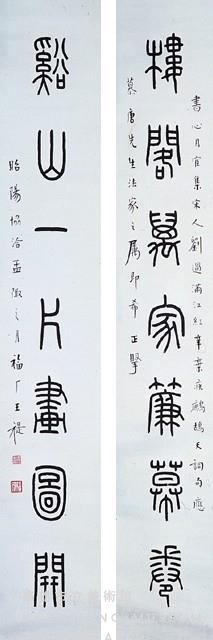 樓閣萬家簾幕卷
書心月宧集宋人劉過滿江紅辛棄疾鷓鴣天詞句應
慕唐先生法家之属即希 正擥
谿山一片畫圖開
昭陽協洽孟陬之月福厂王禔